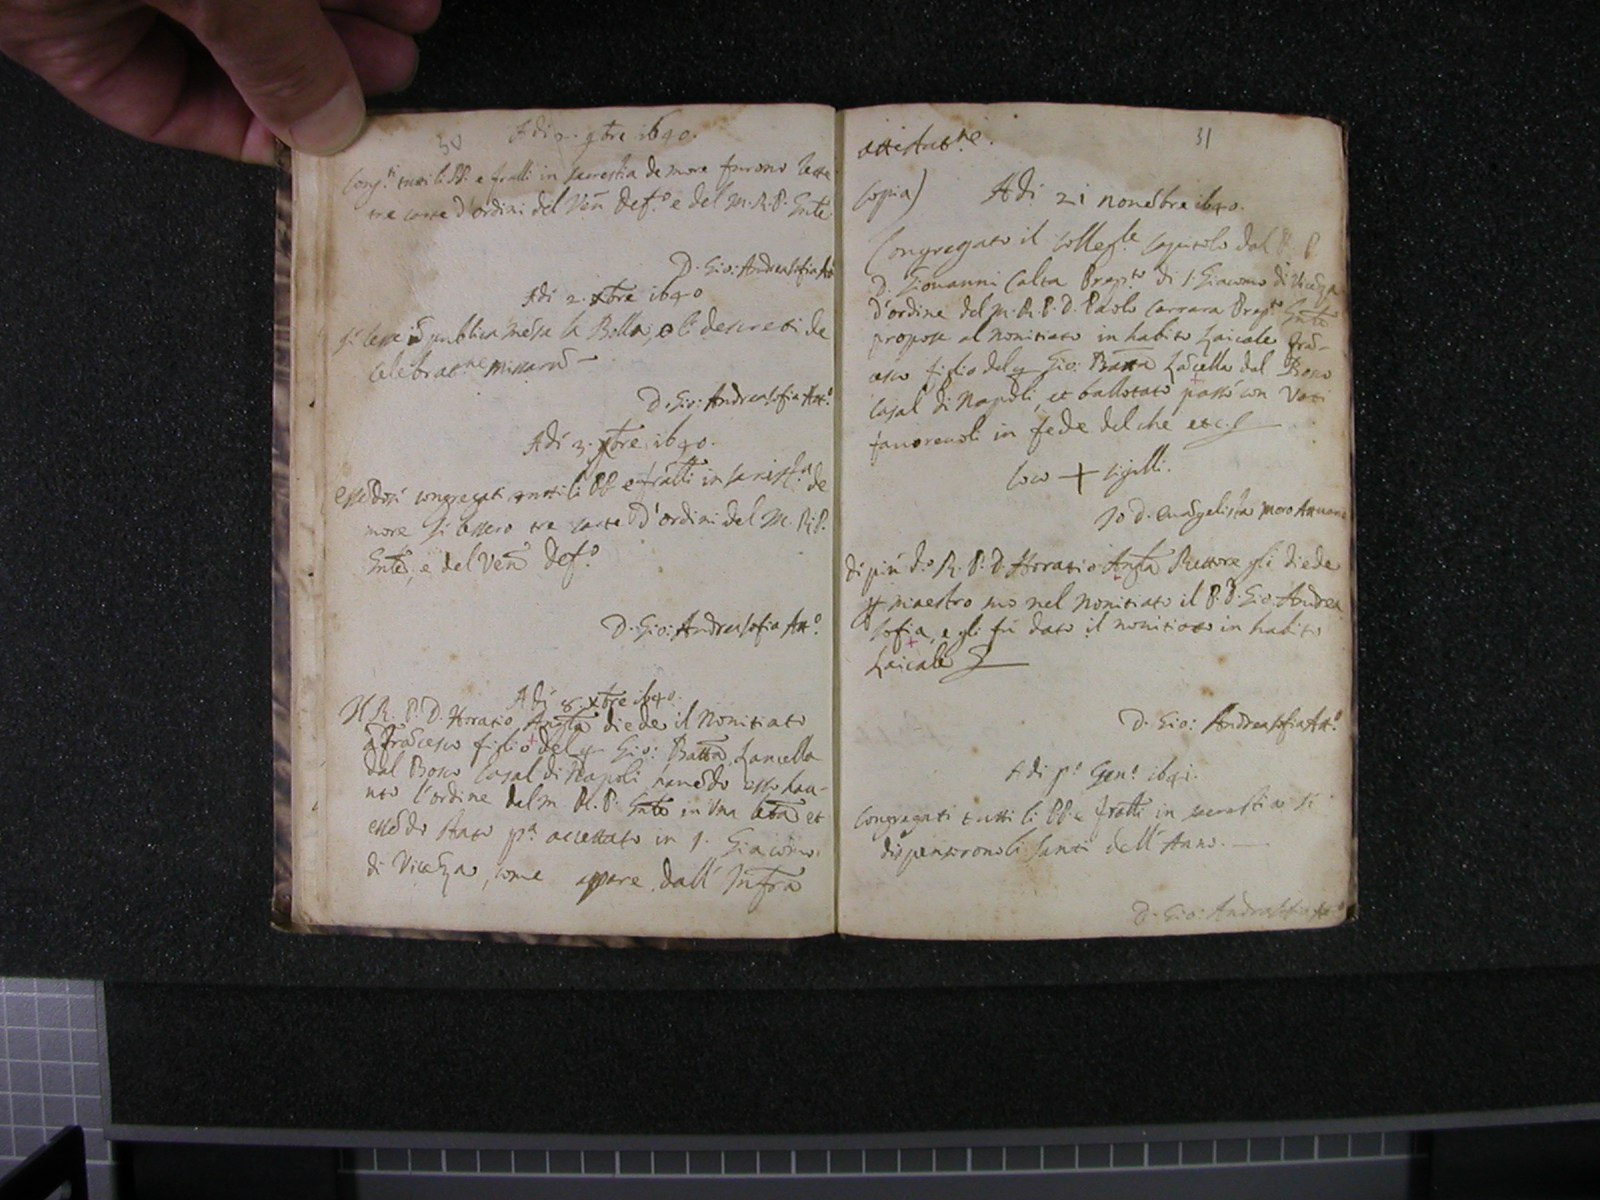 30
Adi 2. 9bre 1640.
Cong.ti tutti li PP. e fratti in sacrestia de more furono lette
tre carte d'ordini del Ven. Def.o e del M.R.P. Gnle.
D. Gio: Andrea Sofia Att
Adi 2. Xbre 1640
si lesse in publica mensa la Bolla, e li decreti de
celebratne missarum
D. Gio: Andrea Sofia Att.o
Adi 3. Xbre 1640.
essedosi congregati tutti li PP e fratti in de
more si lessero tre carte d'ordini del M. R. P.
Gnle, e del Ven Def.o
D. Gio: Andrea Sofia Att.o
Adi 8. Xbre 1640.
Il R. P. D. Horatio Angta diede il Novitiato
à Fracesco figlio del q. Gio: Batta Lancella
dal Bosco Casal di Napoli, havedo esso hau-
uto l'ordine del M. R. P. Gnle in una letta et
essedo stato p.a accettato in S. Giacomo
di Viceza, come appare dall' Infra
31
attestatne.
Copia) Adi 21 novebre 1640.
Congregato il Colleg.le Capitolo dal R. P.
D. Giovanni Calta Prep.to di S. Giacomo di Viceza
d'ordine del M. R. P. D. Paolo Carrara Prep.to Gnle
propose al novitiato in habito Laicale Fra-
cesco figlio del q. Gio: Batta Lacella dal Bosco
Casal di Napoli, et ballotato passò con Voti
favorevoli in fede del che etc.
Loco + sigilli.
Io D. Evagelista Moro Attuario
di più d.o R. P. D. Horatio Angta Rettore gli diede
p maestro suo nel Novitiato il P. D. Gio: Andrea
Sofia, e gli fù dato il novitiato in habito
Laicale
D. Gio: Andrea Sofia Att.o
Adi p.o Gen.o 1641.
Congregati tutti li PP e fratti in sacrestia si
dispensorono li Santi dell' Anno.
D. Gio: Andrea Sofia Att.o